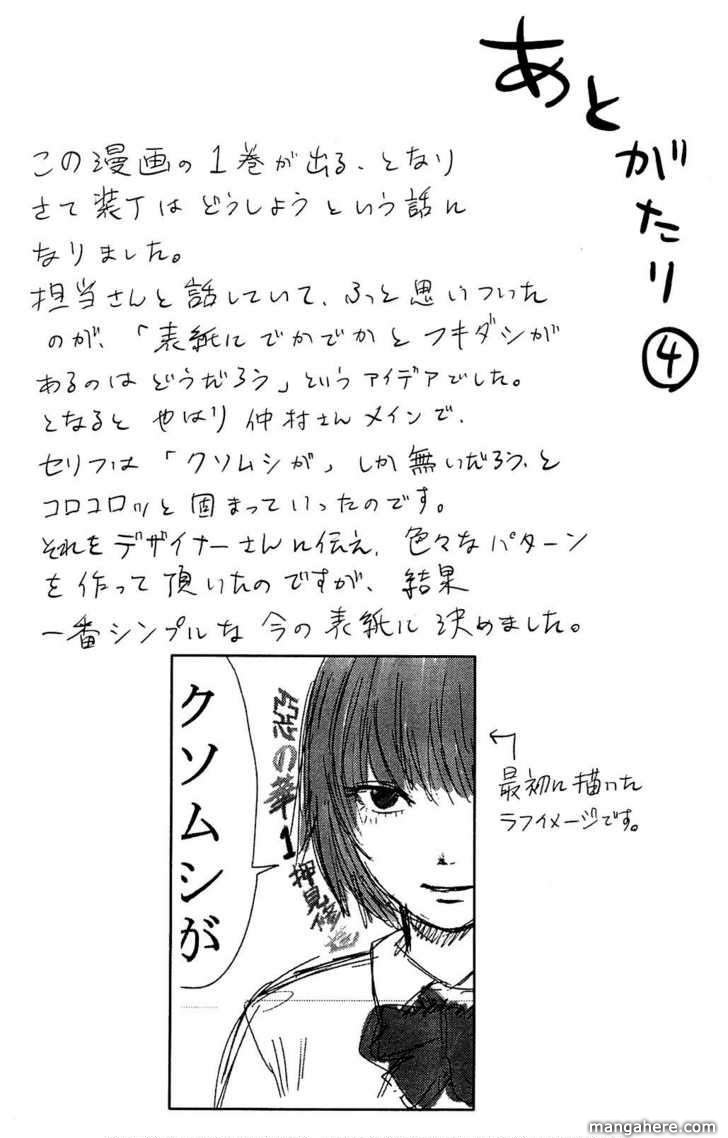 あとがたり④
この漫画の1巻が出る、となり
さて装丁はどうしようという話に
なりました。
担当さんと話していて、ふっと思いついた
のが、「表紙にでかでかとフキダシが
あるのはどうだろう」というアイデアでした。
となると やはり 仲村さんメインで、
セリフは「クソムシが」しか無いだろう、と
コロコロッと固まっていったのです。
それをデザイナーさんに伝え、色々なパターン
を作って頂いたのですが、結果
一番シンプルな今の表紙に決めました。
クソムシが
の華1
押見修
←最初に描いた
ラフイメージです。
mangahere.com